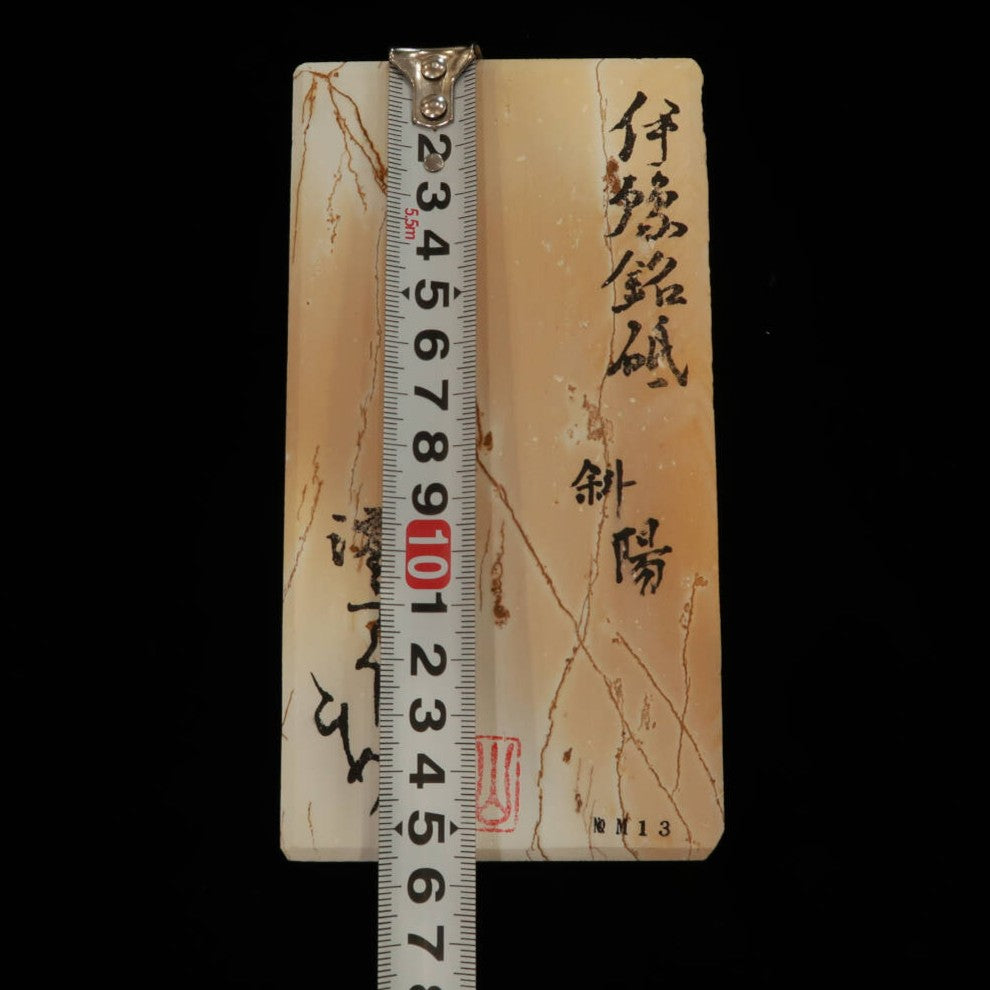 伊豫銘砥
斜陽
№ M13
2
3
5.5m
4
5
6
7
8
9
10
1
2
3
4
5
6
7